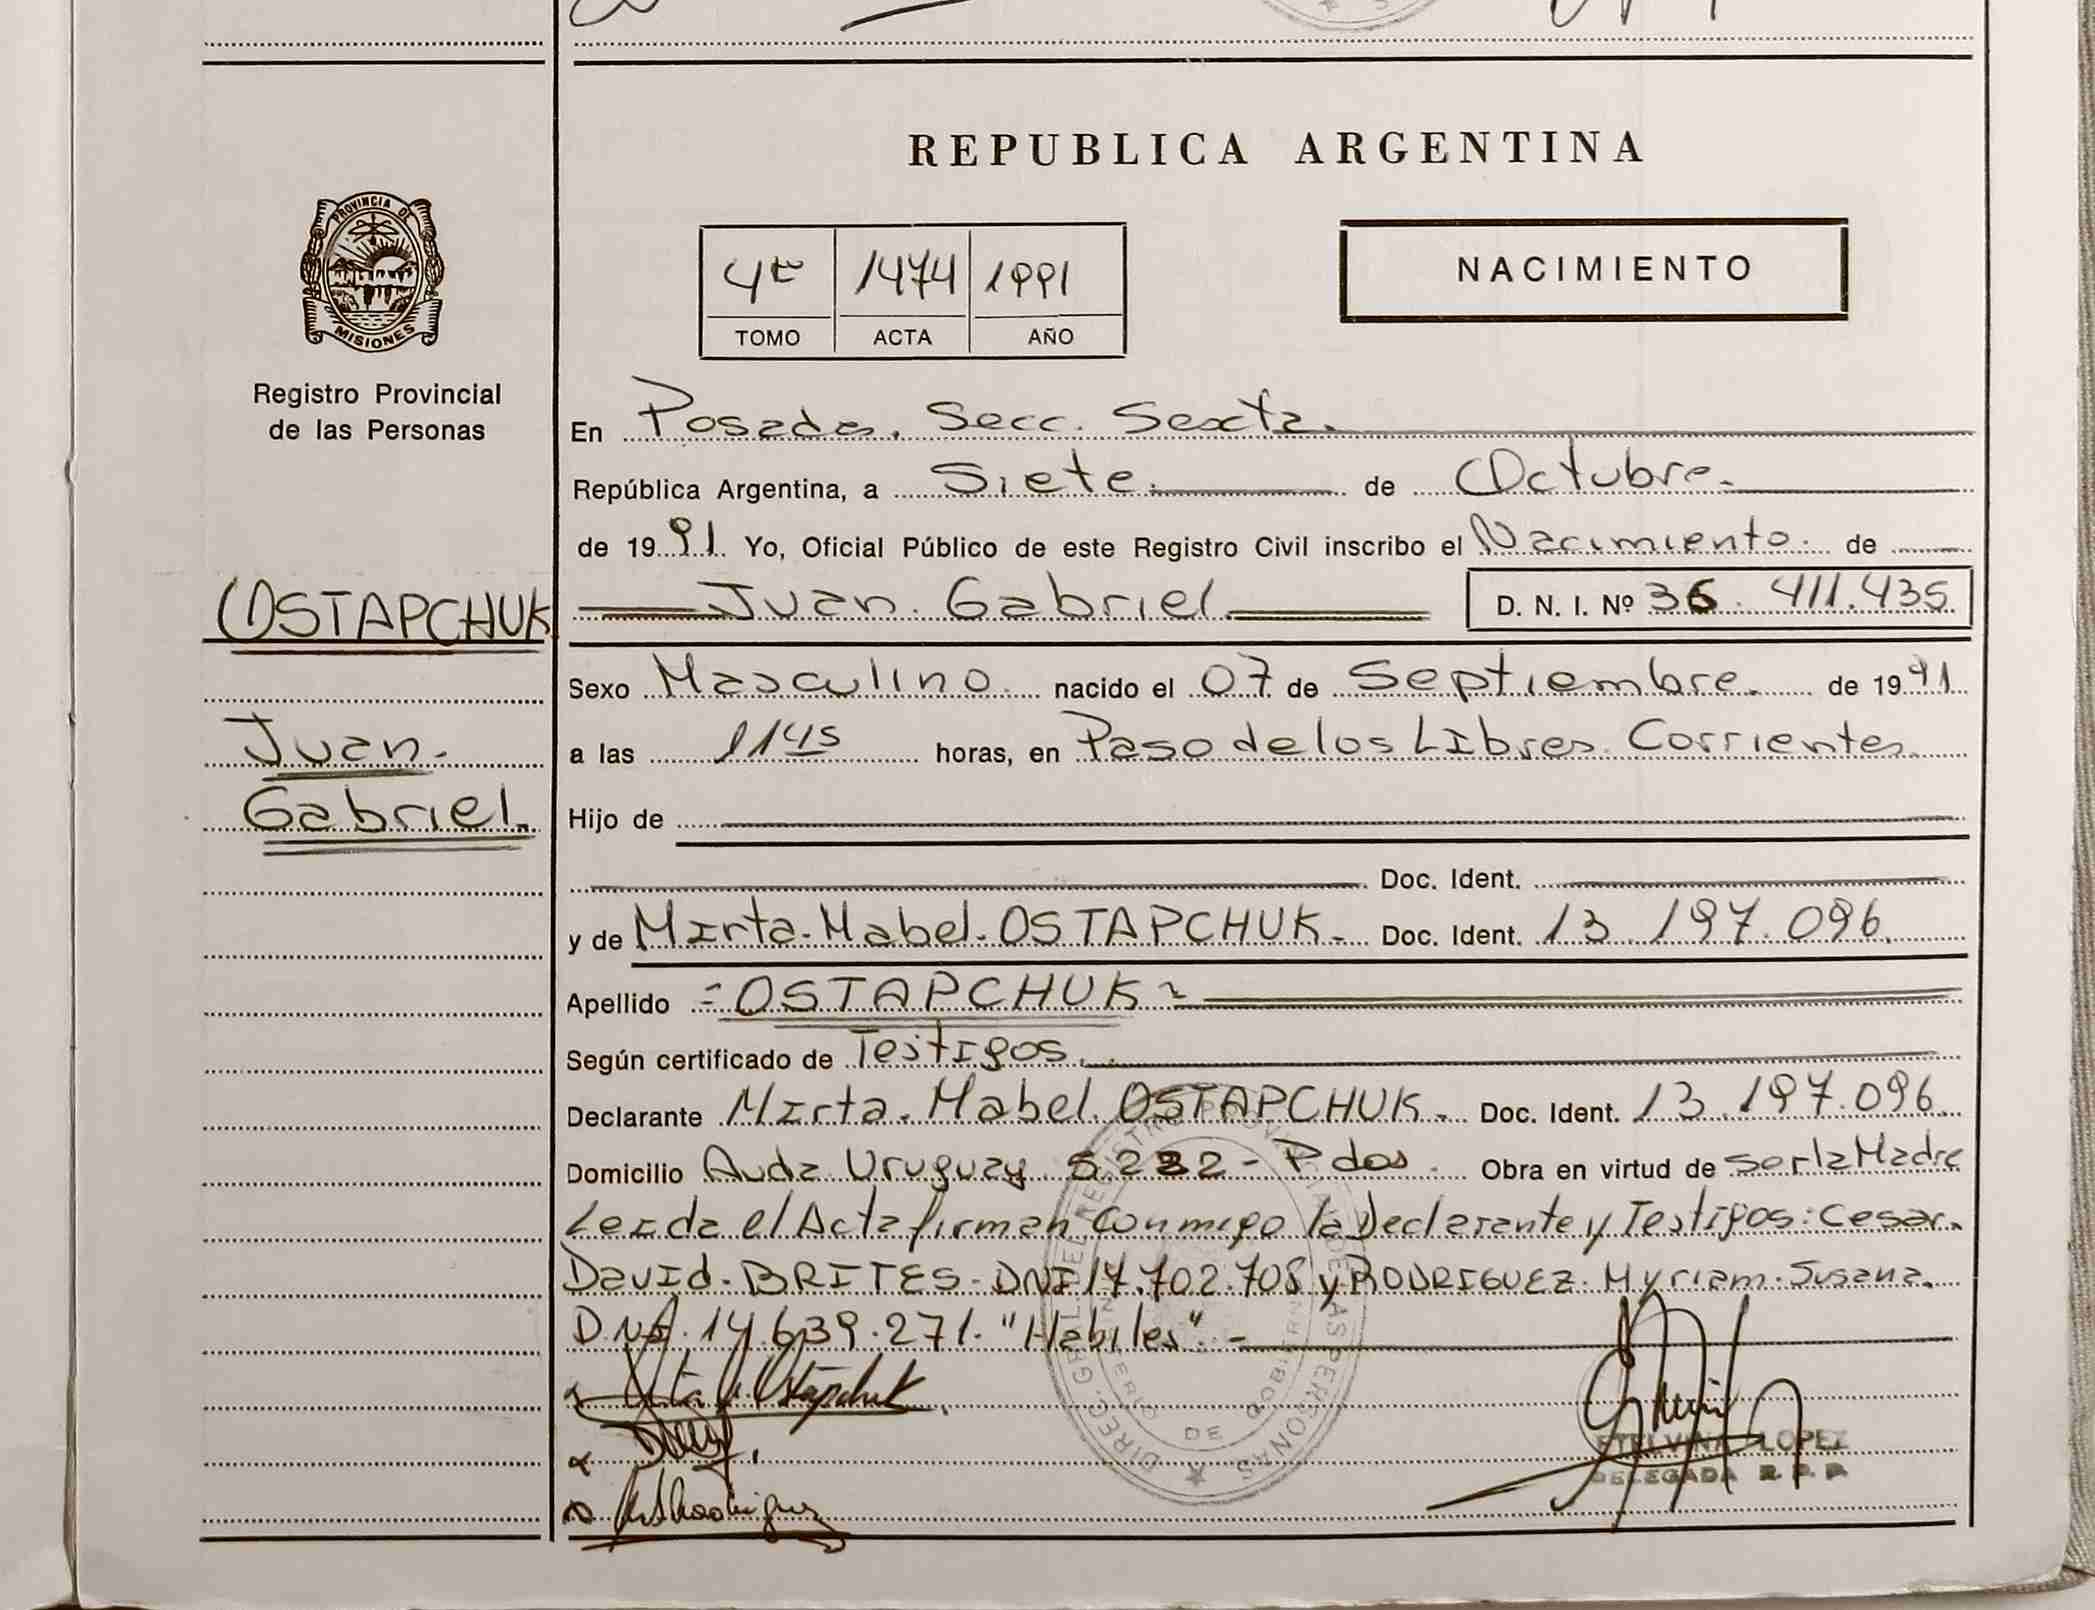 REPUBLICA ARGENTINA
PROVINCIA DE MISIONES
Registro Provincial
de las Personas
4to 1474 1991
TOMO ACTA AÑO
NACIMIENTO
En Posadas. Secc. Sexta.
República Argentina, a Siete. de Octubre.
de 1991. Yo, Oficial Público de este Registro Civil inscribo el Nacimiento. de
OSTAPCHUK
Juan. Gabriel. D. N. I. Nº 36.411.435
Sexo Masculino. nacido el 07 de Septiembre. de 1991
Juan.
a las 1145 horas, en Paso de los Libres. Corrientes.
Gabriel.
Hijo de
Doc. Ident.
y de Mirta. Mabel. OSTAPCHUK. Doc. Ident. 13.197.096.
Apellido =OSTAPCHUK=
Según certificado de Testigos.
Declarante Mirta. Mabel. OSTAPCHUK. Doc. Ident. 13.197.096.
Domicilio Avda. Uruguay 5.232 - Pdas. Obra en virtud de ser la Madre
Leida el Acta firman conmigo la Declarante y Testigos: Cesar.
David. BRITES. DNI 17.702.708 y RODRIGUEZ. Myriam. Susana.
DNI. 14.639.271. "Habiles". -
DIREC. GRAL. DEL REGISTRO PROVINCIAL DE LAS PERSONAS
MINISTERIO DE GOBIERNO
ETELVINA LOPEZ
DELEGADA R. P. P.